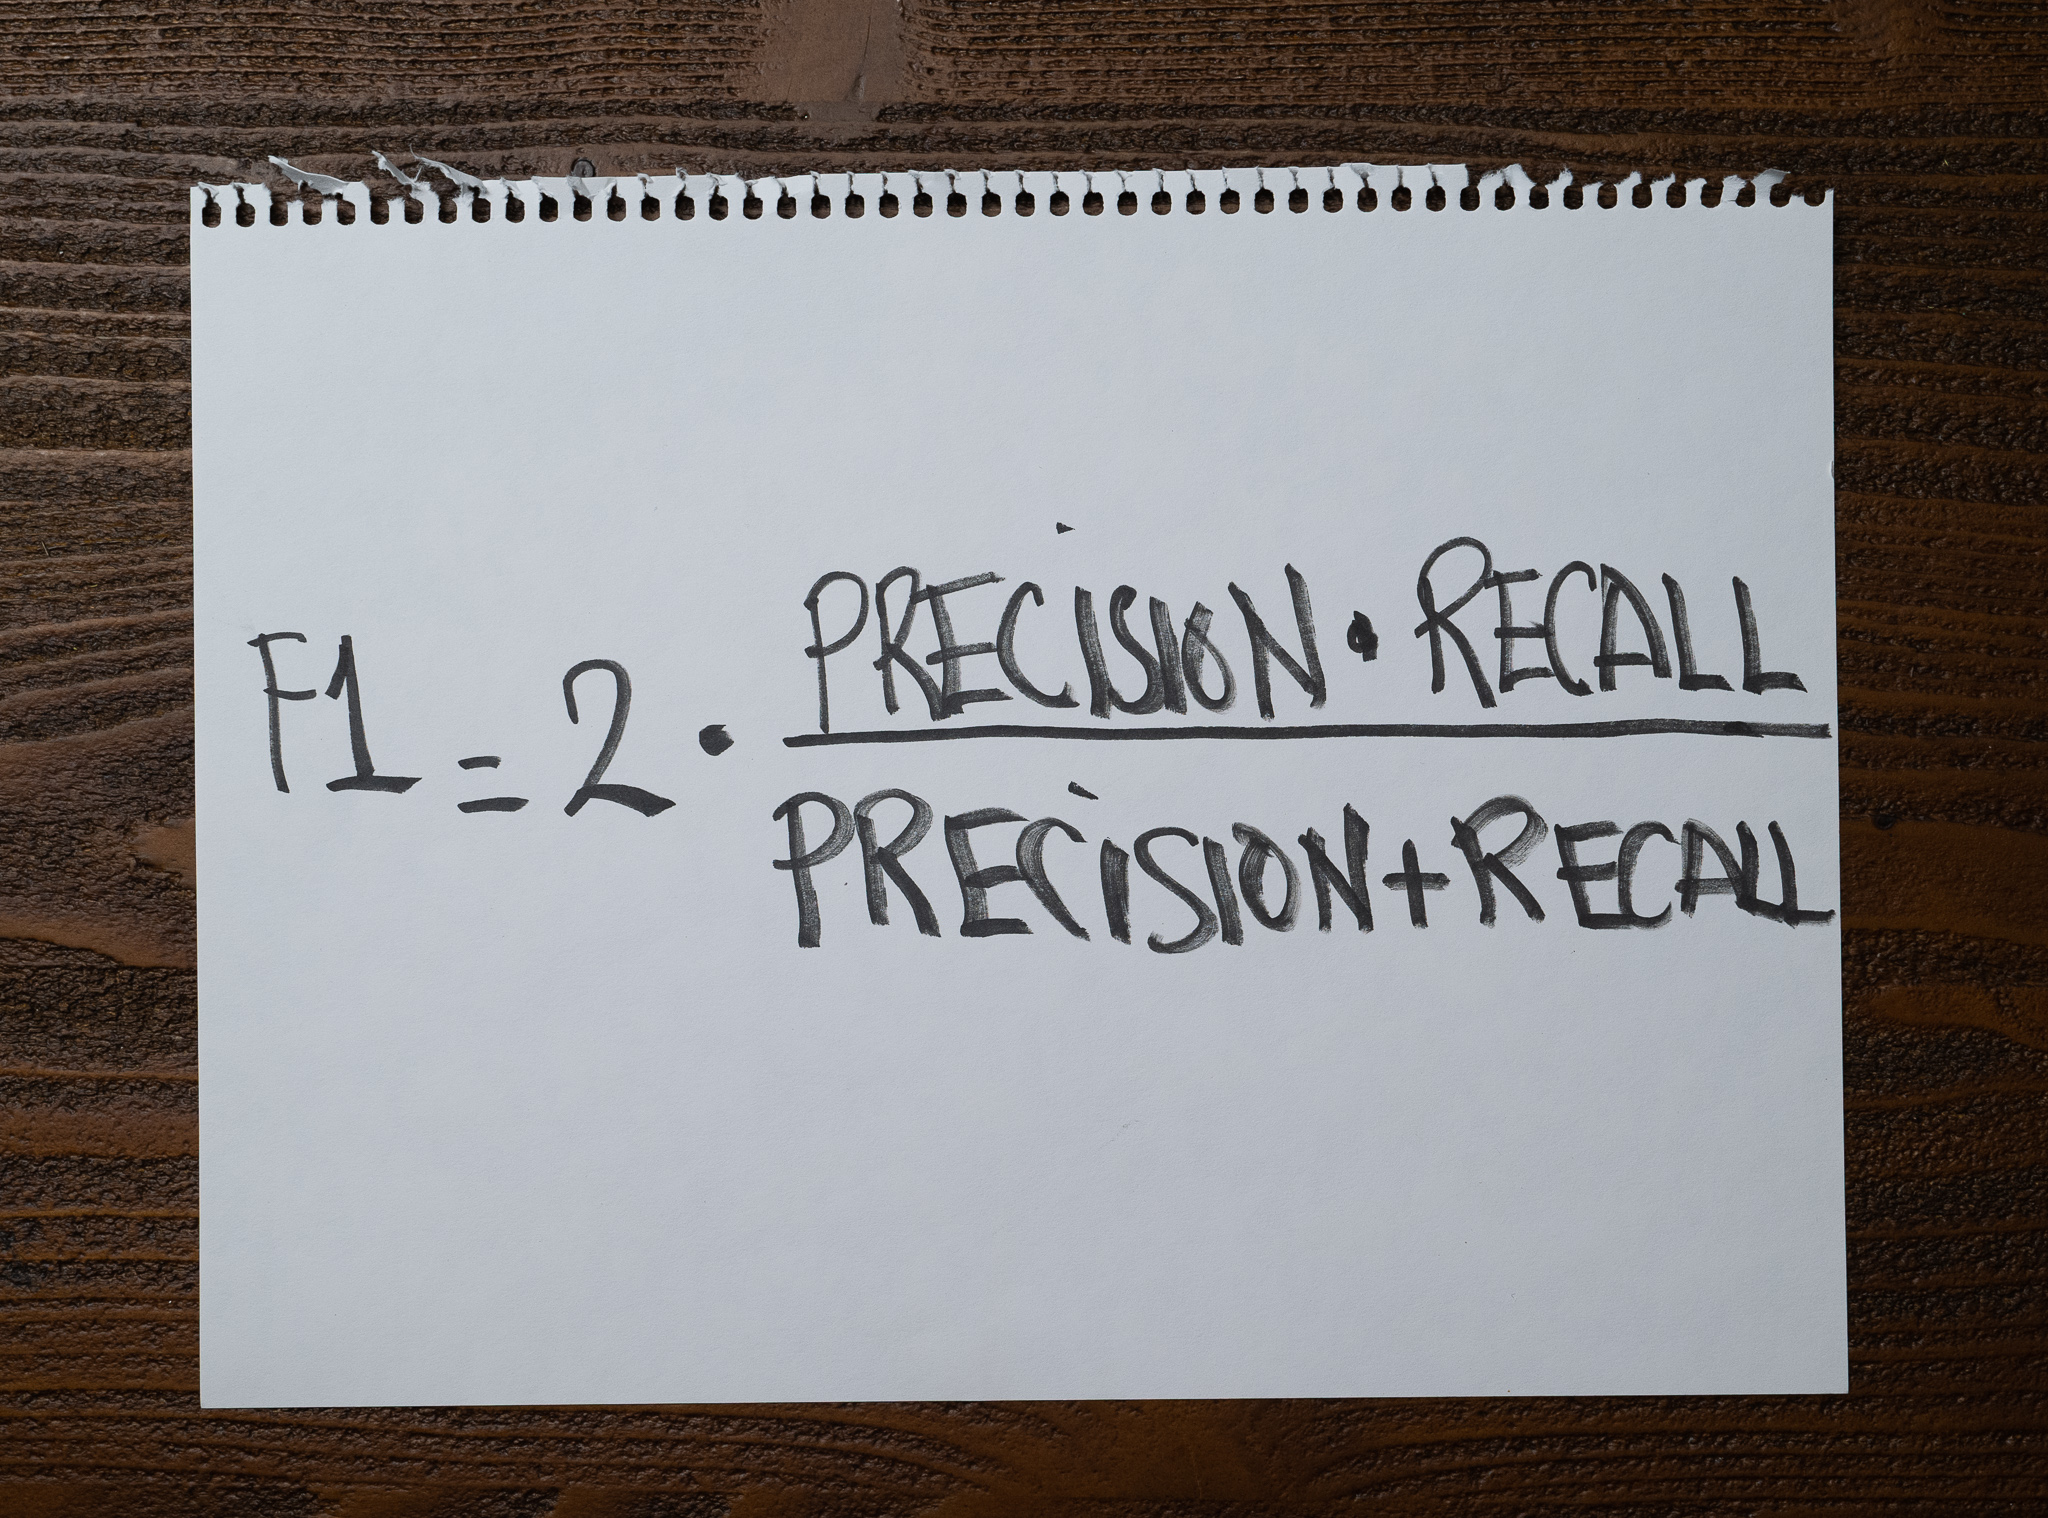 PRECiSION • RECALL
F1 = 2 •
PRECiSION + RECALL